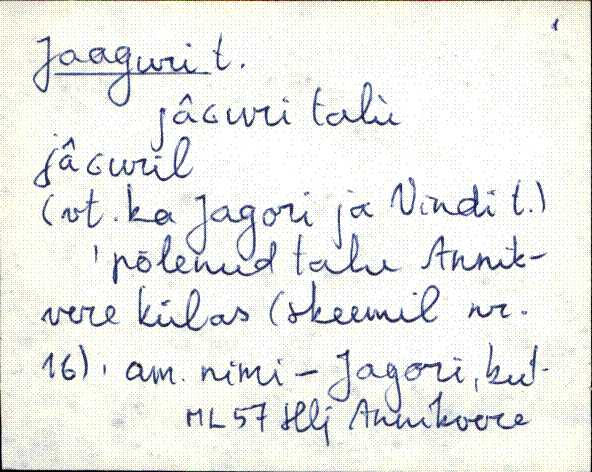 1
Jaaguri t.
jâGuri talù
jâGuril
(vt. ka Jagori ja Vindi t.)
'põlenud talu Annik-
vere külas (skeemil nr.
16)' am. nimi – Jagori, kut-
ML 57 Hlj Annikvere